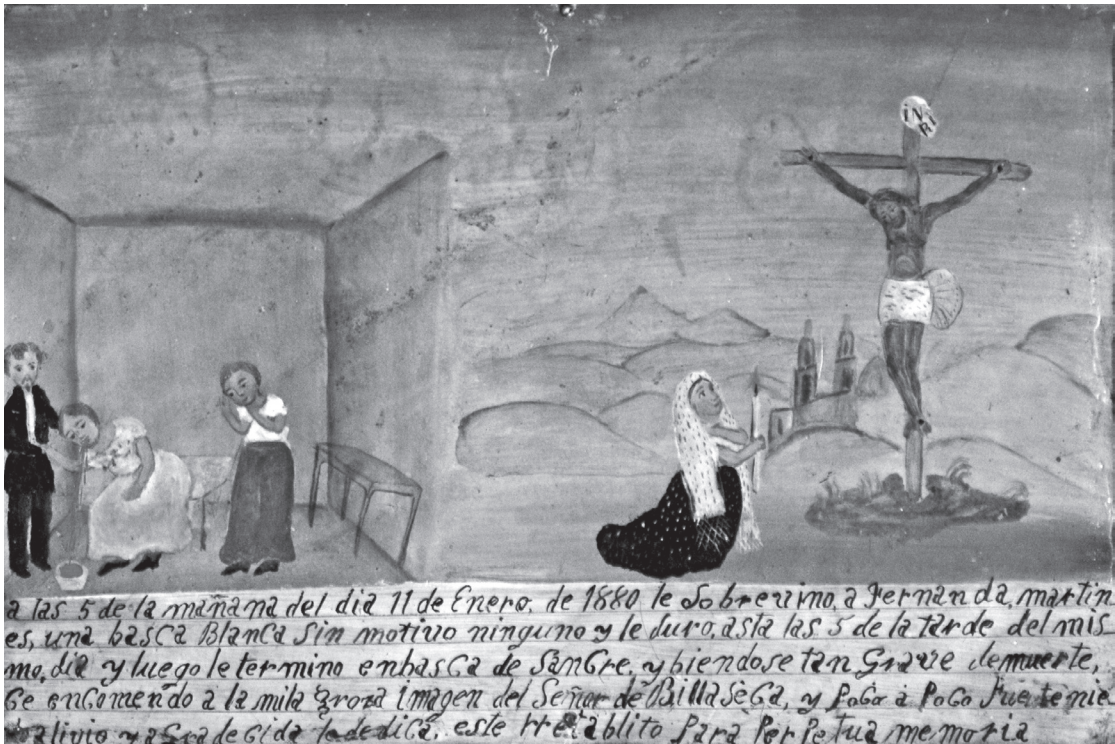 INRI
a las 5 de la mañana del dia 11 de Enero. de 1880 le Sobrevino, a Fernanda, martin
es, una basca Blanca Sin motivo ninguno y le duro, asta las 5 de la tarde del mis
mo, dia y luego le termino en basca de SanGre, y biendose tan Grave de muerte,
Ce encomendo a la mila groza imagen del Señor de Billa Seca, y PoCo a PoCo fue tenie
alivio y aGradeCida le dedica, este rretablito Para PerPetua memoria